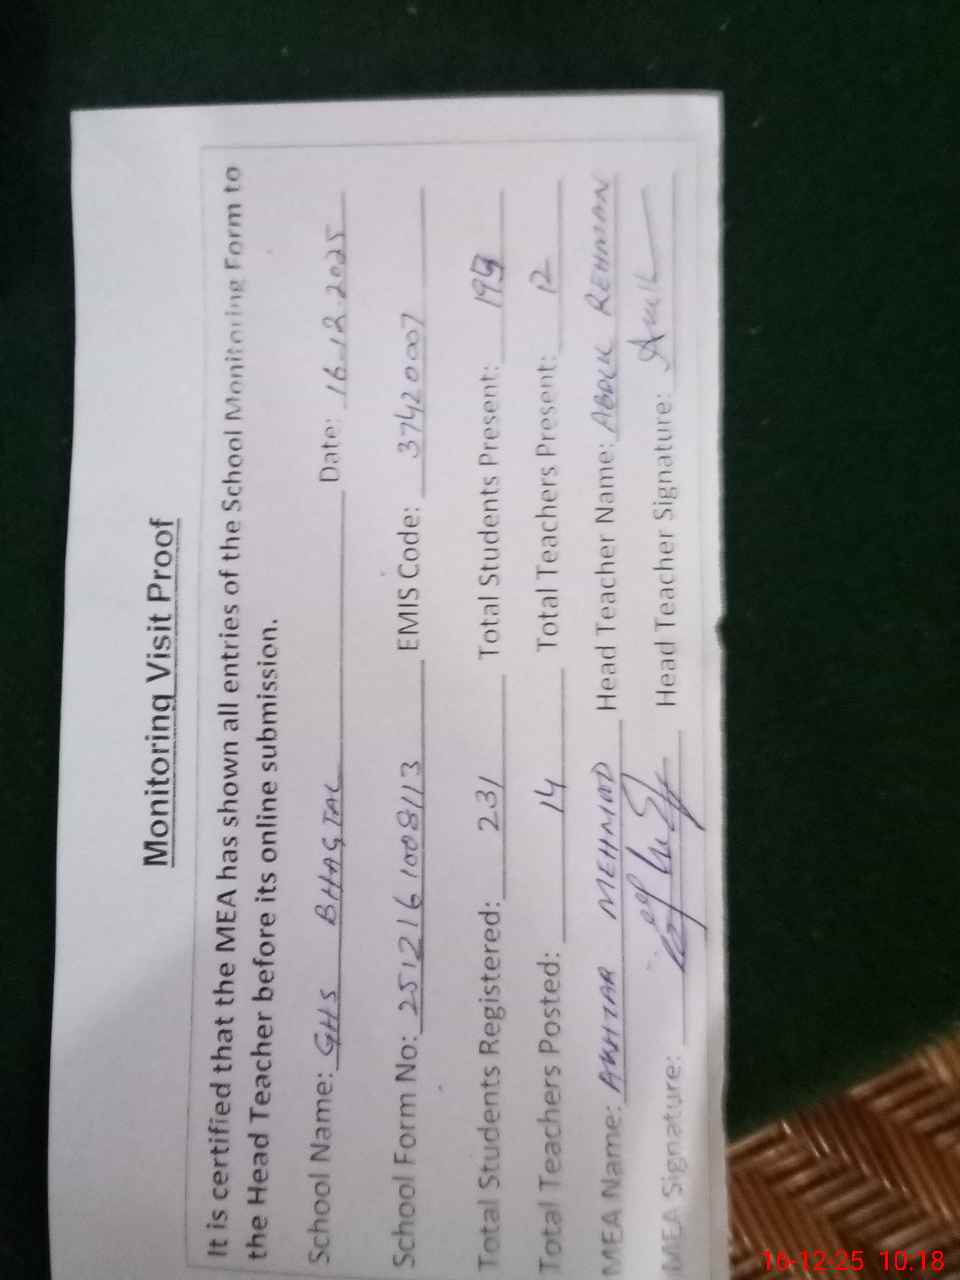 Monitoring Visit Proof
It is certified that the MEA has shown all entries of the School Monitoring Form to
the Head Teacher before its online submission.
School Name: GHS BHAGTAL Date: 16-12-2025
School Form No: 2512161008113 EMIS Code: 37420007
Total Students Registered: 231 Total Students Present: 199
Total Teachers Posted: 14 Total Teachers Present: 12
MEA Name: AKHTAR MEHMOOD Head Teacher Name: ABDUL REHMAN
MEA Signature: Head Teacher Signature:
16-12-25 10:18